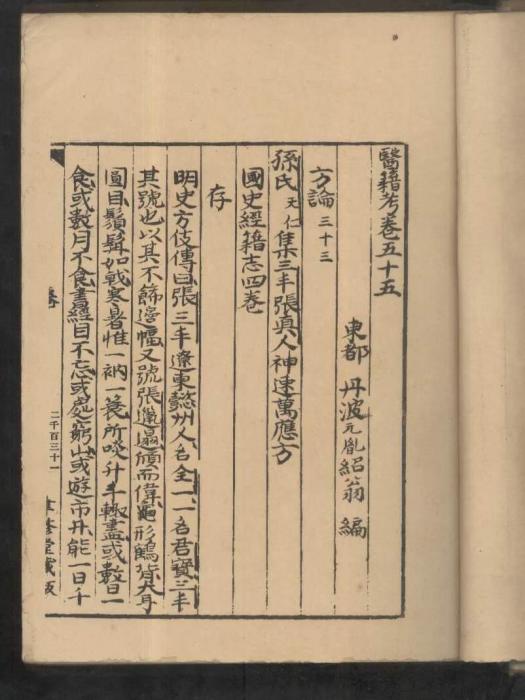 醫籍考卷五十五
東都 丹波元胤紹翁 編
方論三十三
孫氏天仁集三丰張真人神速萬應方
國史經籍志四卷
存
明史方伎傳曰張三丰遼東懿州人名全一一名君寶三丰
其號也以其不飾邊幅又號張邋遢頎而偉龜形鶴背大耳
圓目鬚髯如戟寒暑惟一衲一蓑所啖升斗輒盡或數日一
食或數月不食書經目不忘或處窮山或遊市井能一日千
二千百三十一
聿修堂藏版